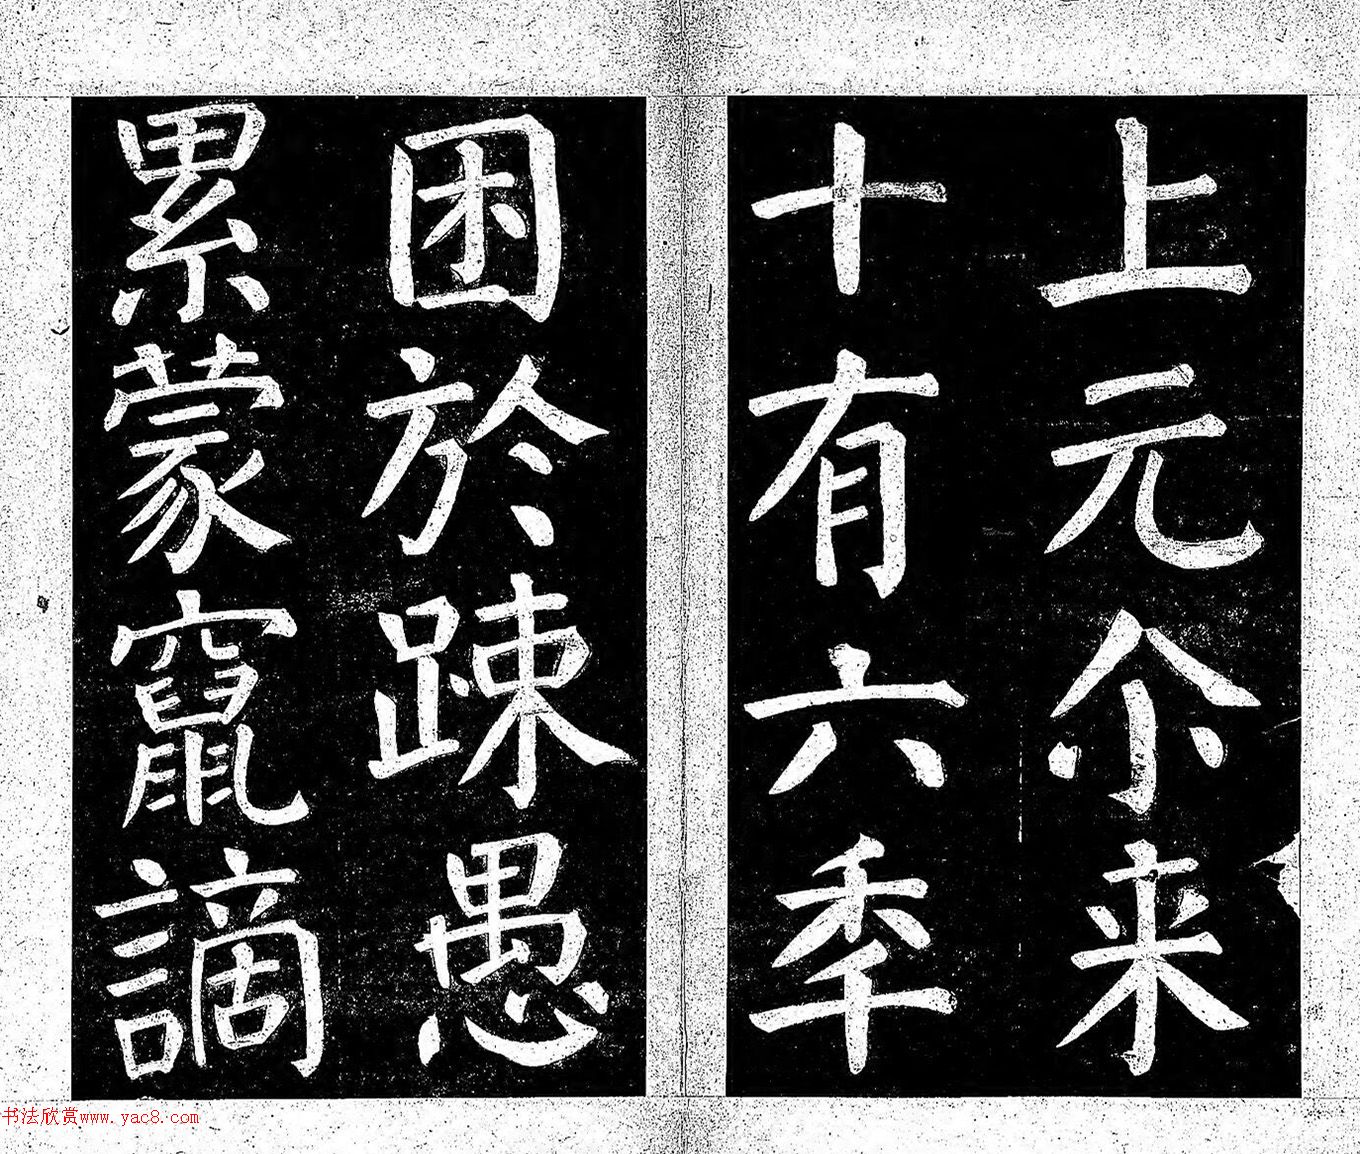 上元尒来
十有六秊
困於踈愚
累蒙竄謫
书法欣赏www.yac8.com